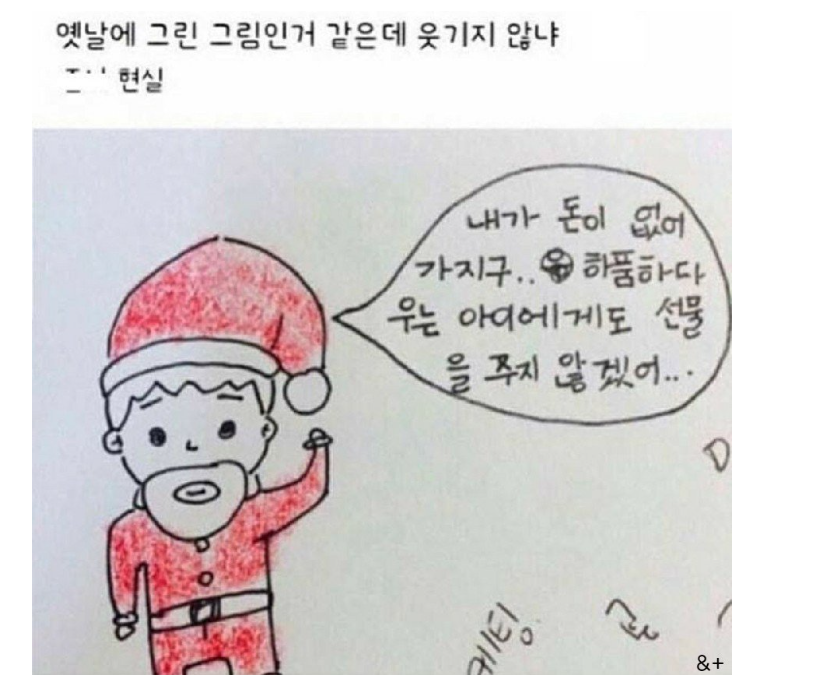 옛날에 그린 그림인거 같은데 웃기지 않냐
현실
내가 돈이 없어
가지구.. 하품하다
우는 아이에게도 선물
을 쭈지 않겠어...
케팅
&+